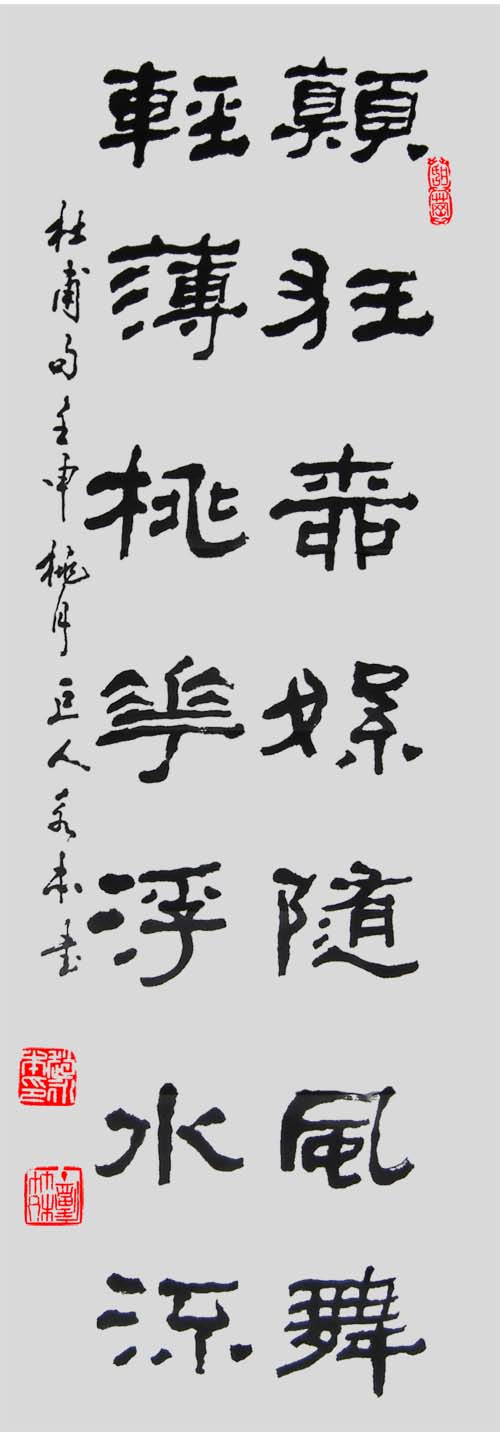 顛狂柳絮隨風舞
輕薄桃華浮水流
杜甫句壬申桃月巨人本書